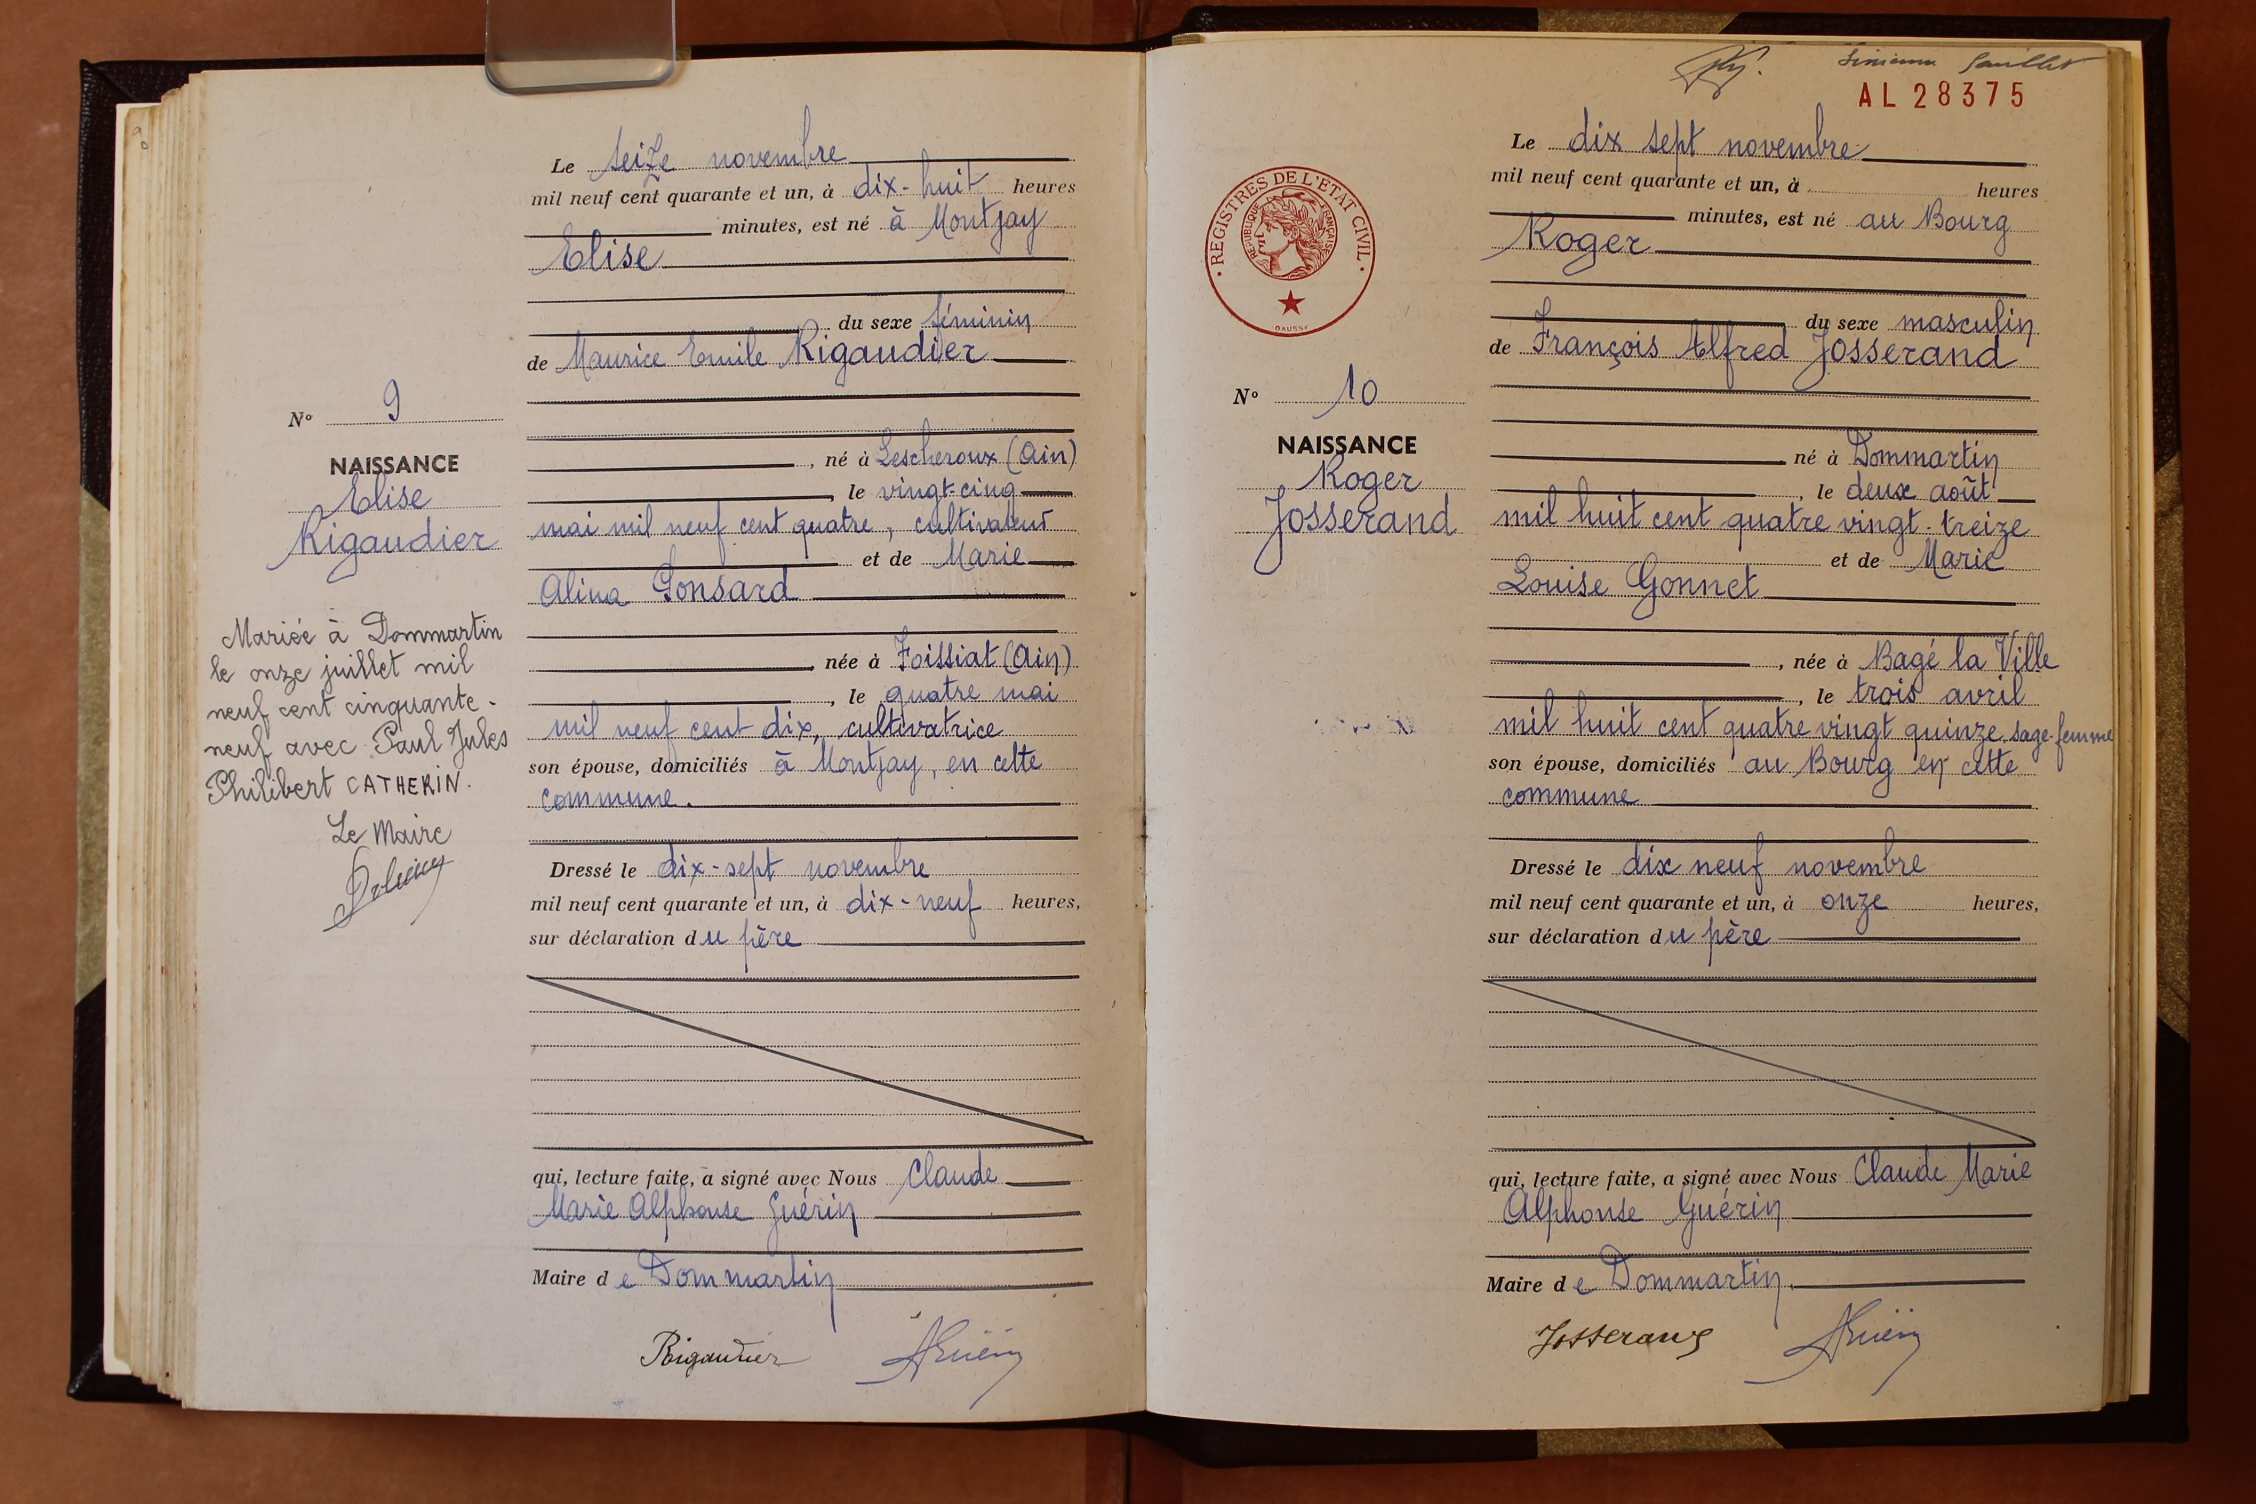 Le seize novembre
mil neuf cent quarante et un, à dix-huit heures
minutes, est né à Montjay
Elise
du sexe féminin
de Maurice Emile Rigaudier
N° 9
NAISSANCE
Elise
Rigaudier
, né à Lescheroux (Ain)
, le vingt-cinq
mai mil neuf cent quatre, cultivateur
et de Marie
Alina Gonsard
Mariée à Dommartin
le onze juillet mil
neuf cent cinquante-
neuf avec Paul Jules
Philibert CATHERIN.
Le Maire
, née à Foissiat (Ain)
, le quatre mai
mil neuf cent dix, cultivatrice
son épouse, domiciliés à Montjay, en cette
commune.
Dressé le dix-sept novembre
mil neuf cent quarante et un, à dix-neuf heures,
sur déclaration du père
qui, lecture faite, a signé avec Nous Claude
Marie Alphonse Guérin
Maire de Dommartin
Rigaudier AGuérin
AL 28375
REGISTRES DE L'ÉTAT CIVIL
RÉPUBLIQUE FRANÇAISE
Le dix sept novembre
mil neuf cent quarante et un, à heures
minutes, est né au Bourg
Roger
du sexe masculin
de François Alfred Josserand
N° 10
NAISSANCE
Roger
Josserand
né à Dommartin
, le deux août
mil huit cent quatre vingt-treize
et de Marie
Louise Gonnet
, née à Bagé la Ville
, le trois avril
mil huit cent quatre vingt quinze, sage-femme
son épouse, domiciliés au Bourg en cette
commune
Dressé le dix neuf novembre
mil neuf cent quarante et un, à onze heures,
sur déclaration du père
qui, lecture faite, a signé avec Nous Claude Marie
Alphonse Guérin
Maire de Dommartin.
Josserand AGuérin